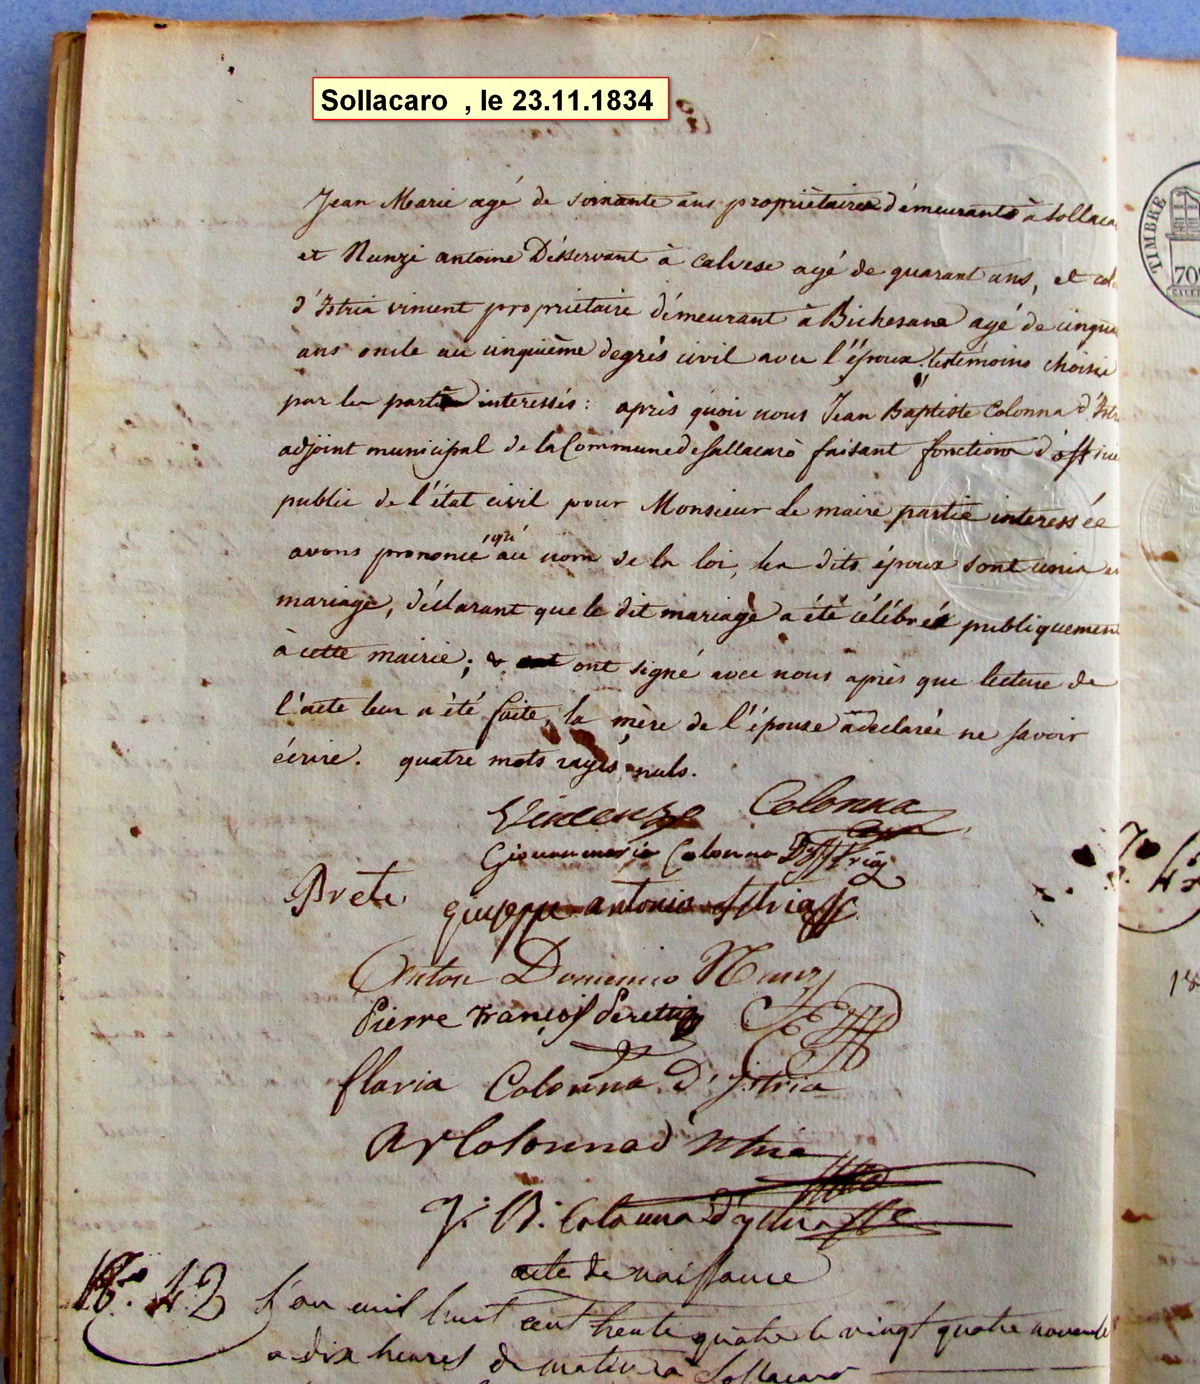 Sollacaro , le 23.11.1834
Jean Marie agé de soixante ans propriètaires démeurants à Sollaca
et Nunzi antoine Désservant à Calvese agé de quarant ans, et col
d'Istria vincent propriètaire démeurant à Bichesana agé de cinqua
ans oncle au cinquième degrés civil avec l'époux. témoins choisie
par les partie interessés: après quoi nous Jean Baptiste Colonna d'Istr
adjoint municipal de la Commune de Sollacarò faisant fonction d'offici
public de l'état civil pour Monsieur le maire partie interessée
avons prononcé qu' au nom de la loi, les dits époux sont unis en
mariage, déclarant que le dit mariage a été célébré publiquement
à cette mairie; & ont signé avec nous après que lecture de
l'acte leur a été faite, la mère de l'épouse a declarée ne savoir
écrire. quatre mots rayés nuls.
Vincenzo Colonna
Giovanmaria Colonna D'Istria
Brete Giuseppe antonio Istria
Anton Domenico Nunzi
Pierre François Peretti
flavia Colonna d'Istria
Colonna d'Istria
J. B. Colonna d'Istria
acte de naissance
TIMBRE
70
No. 42 L'an mil huit cent trente quatre le vingt quatre novembre
a dix heures de matin à Sollacaro
18